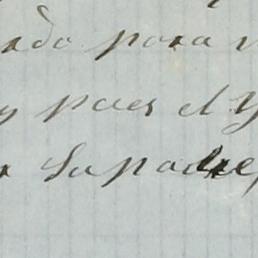 ado para
y pues el Y
Su padre,